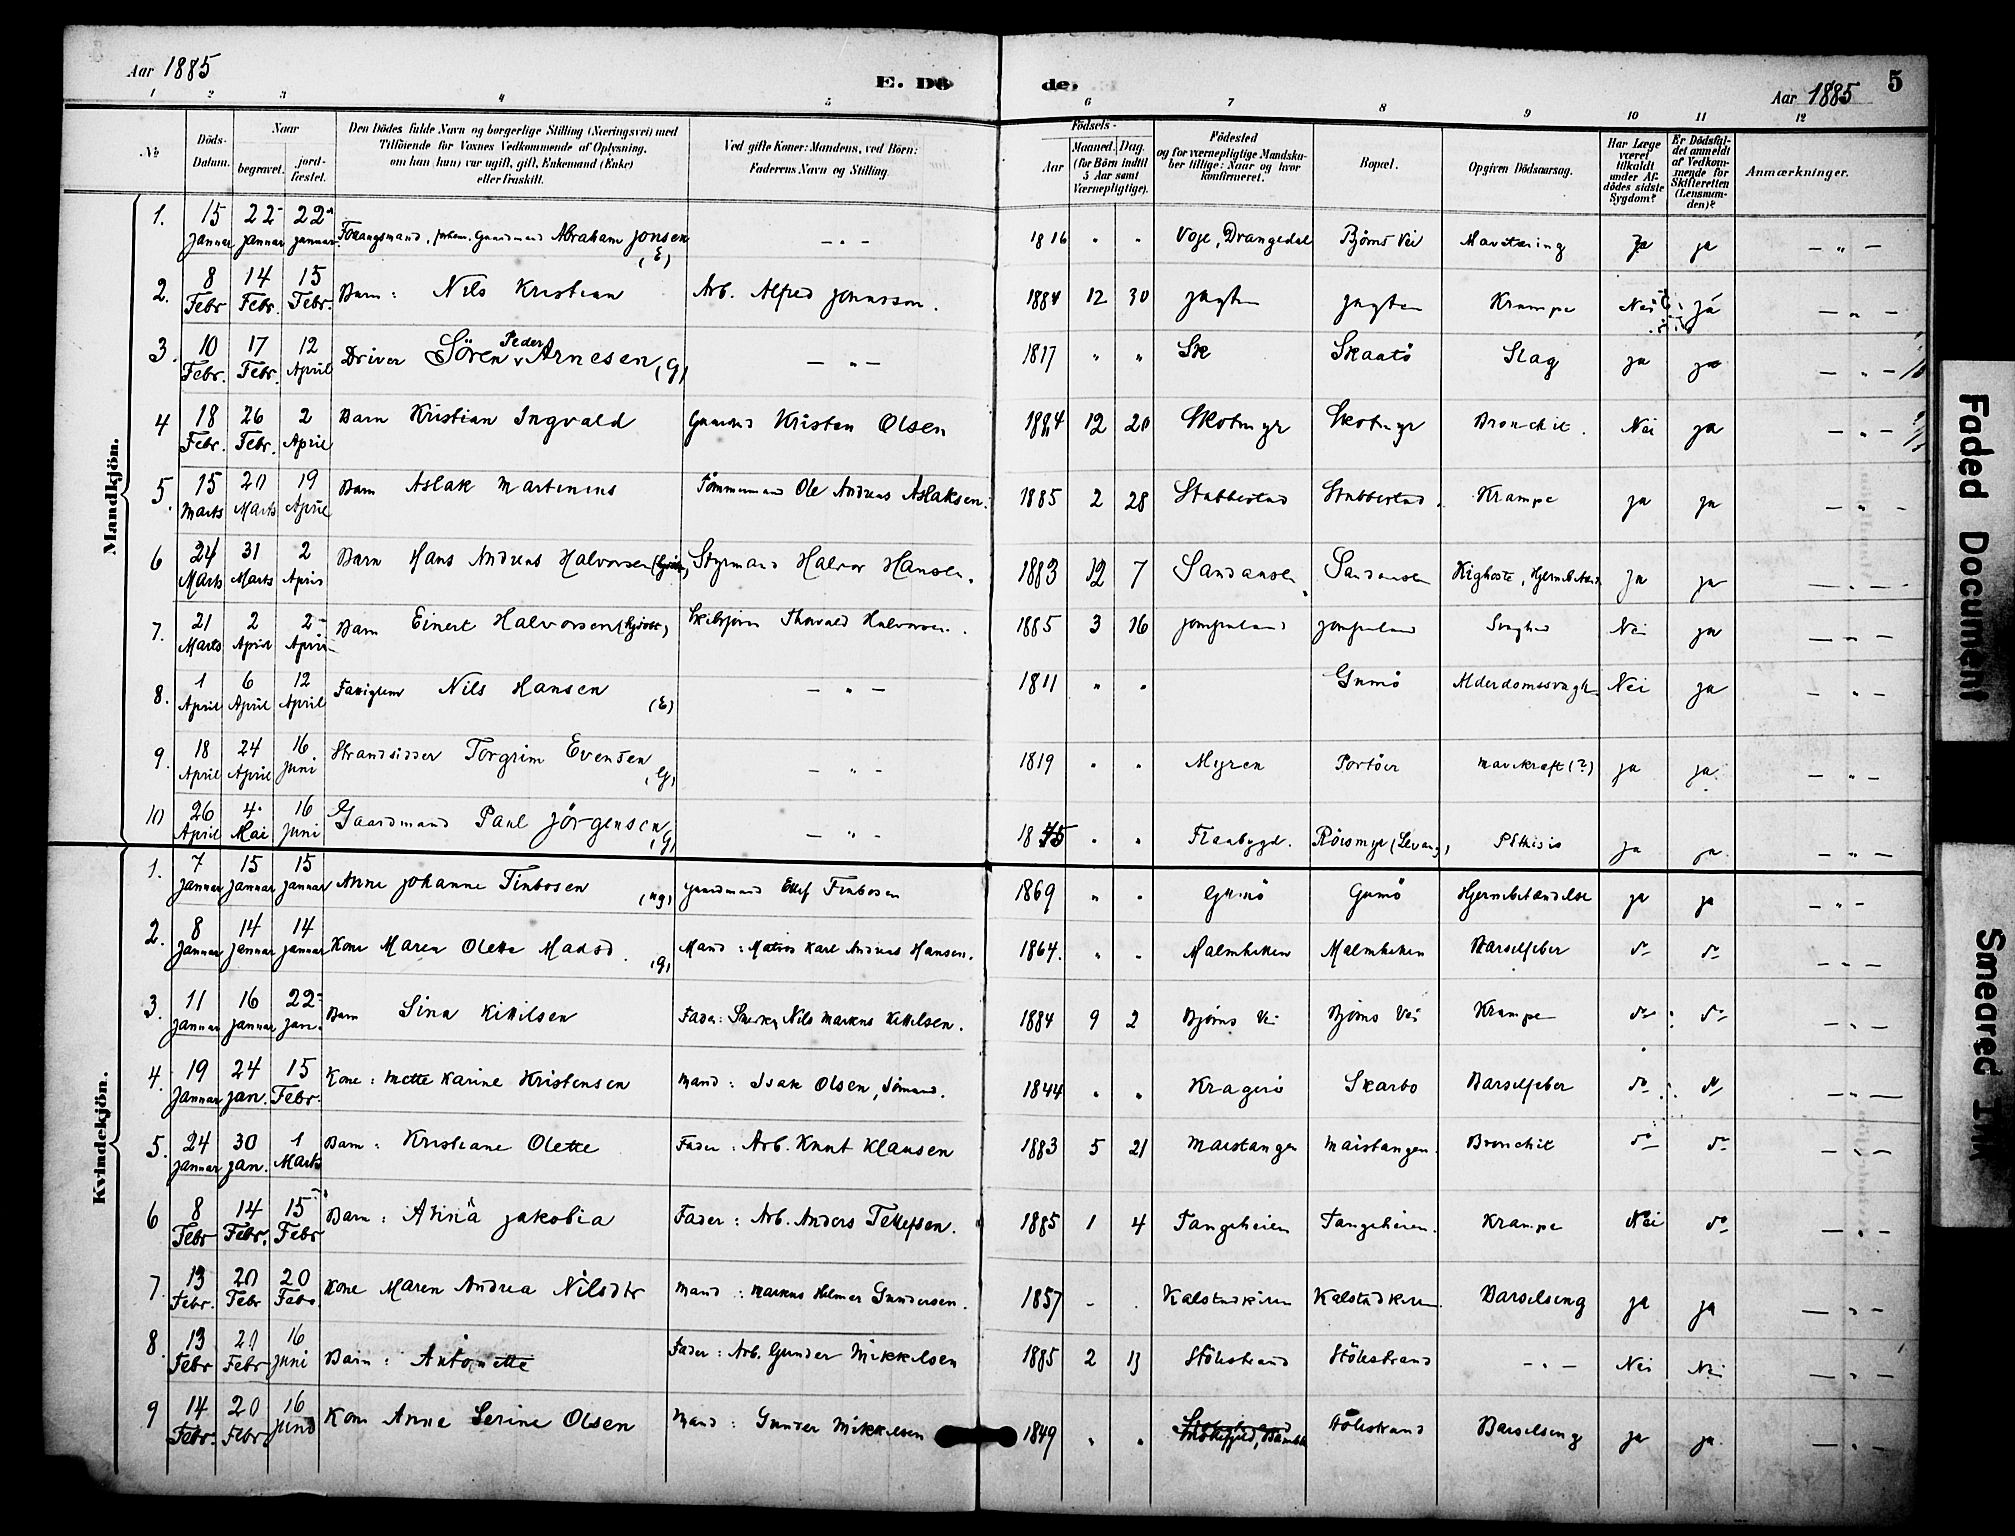 Aar 1885
E. Dö
de.
Aar 1885
5
1 2 3 4 5 6 7 8 9 10 11 12
No
Döds-Datum.
Naar
begravet. jord-fæstet.
Den Dödes fulde Navn og borgerlige Stilling (Næringsvei) med
Tilföiende for Voxnes Vedkommende af Oplysning,
om han (hun) var ugift, gift, Enkemand (Enke)
eller fraskilt.
Ved gifte Koner: Mandens, ved Börn:
Faderens Navn og Stilling.
Födsels-
Aar Maaned. Dag.
(for Börn indtil 5 Aar samt Værnepligtige).
Födested
og for værnepligtige Mandskaber tillige: Naar og hvor konfirmeret.
Bopæl.
Opgiven Dödsaarsag.
Har Læge været tilkaldt under Afdödes sidste Sygdom?
Er Dödsfaldet anmeldt af Vedkommende for Skifteretten (Lensmanden)?
Anmærkninger.
Mandkjön.
1. 15 Januar 22 Januar 22 Januar Abraham Jonsen (E) — " — 1816 " " Voje, Drangedal Björns Vei Ja ja — " —
2. 8 Febr 14 Febr. 15 Febr. Barn: Nils Kristian Arb. Alfred 1884 12 30 Krampe Nei Ja — " —
3. 10 Febr. 17 Febr. 12 April Driver Sören Peder Arnesen (G) — " — 1817 " " Sk Skaatö Slag ja ja — " —
4 18 Febr. 26 Febr. 2 April Barn Kristian Ingvald Kristen Olsen 1884 12 20 Skotmyr Skotmyr Bronchit. Nei ja — " —
5. 15 Marts 20 Marts 19 April Barn Aslak Martinius Tömmermand Ole Andreas Aslaksen. 1885 2 28 Stabbestad Stabbestad. Krampe ja ja — " —
6 24 Marts 31 Marts 2 April Barn Hans Andreas Halvorsen Styrmand Halvor Hansen. 1883 12 7 Kighoste, ja ja — " —
7. 21 Marts 2 April 2 April Barn Einert Halvorsen Thorvald Halvorsen. 1885 3 16 Jomfruland Jomfruland Svaghed Nei ja — " —
8. 1 April 6 April 12 April Nils Hansen (E) — " — 1811 " " Gumö Alderdomssvagh. Nei ja — " —
9. 18 April 24 April 16 Juni Strandsidder Torgrim Evensen (G) — " — 1819 " " Myren Portöer Mavekræft (?) ja ja. — " —
10 26 April 4 Mai 16 Juni Gaardmand Paul Jörgensen (G) — " — " " Flaabygd. Röismyr (Levang) Pthisis ja ja. — " —
Kvindekjön.
1. 7 Januar 15 Januar 15 Januar Anne Johanne Finbosen (ug) Finbosen 1869 " " Gumö Gumö Hjernebetændelse ja ja — " —
2. 8 Januar 14 Januar 14 Januar Kone Maren Olette Madsd. (g) Mand: Matros Karl Andreas Hansen. 1864. " " Malmheken Malmheken Barselfeber do do — " —
3. 11 Januar 16 Januar 22 Jan. Barn Sina Kittilsen Fader: Nils Markus Kittilsen. 1884 9 2 Björns Vei Björns Vei Krampe do do — " —
4. 19 Januar 24 Jan. 15 Febr. Kone: Mette Karine Kristensen Mand: Isak Olsen, Sömand. 1844 " " Kragerö Skarbo Barselfeber do do — " —
5. 24 Januar 30 Jan. 1 Marts Barn: Kristiane Olette Fader: Arb. Knut Klausen 1883 5 21 Maistangen Maistangen. Bronchit do do — " —
6 8 Febr 14 Febr. 15 Febr Barn: Anna Jakobia Fader: Arb. Anders Tellefsen. 1885 1 4 Tangeheien Tangeheien. Krampe Nei do — " —
7. 13 Febr. 20 Febr 20 Febr. Kone Maren Andrea Nilsdtr Mand: Markus Helmer Gundersen. 1857 " " Kalstadkiren Kalstadkiren Barselseng ja ja — " —
8. 13 Febr 20 Febr 16 Juni Barn: Antonette Fader: Arb. Gunder Mikkelsen 1885 2 13 Stölestrand Stölestrand — " — Nei Nei — " —
9 14 Febr. 20 Febr 16 Juni Kone Anne Serine Olsen Mand: Gunder Mikkelsen 1849 " " Stölestrand Barselseng ja ja — " —
Faded Document
Smeared Ink